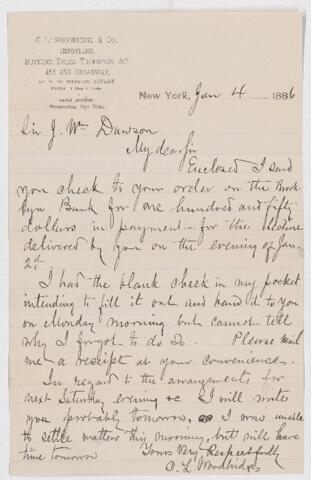 C. L. Woodbridge & Co.
IMPORTERS
Buttons, Dress Trimmings, &c.
451 & 453 Broadway,
New York, Jan 4 1886
Sir J. Wm Dawson
My dear Sir
Enclosed I send
you check to your order on the Brook
lyn Bank for one hundred and fifty
dollars in payment for the lecture
delivered by you on the evening of Jan.
2d.
I had the blank check in my pocket
intending to fill it out and hand it to you
on Monday morning but cannot tell
why I forgot to do so. Please mail
me a receipt at your convenience.
In regard to the arrangements for
next Saturday evening &c I will write
you probably tomorrow, as I was unable
to settle matters this morning, but will have
time tomorrow
Yours Very Respectfully
C. L. Woodbridge